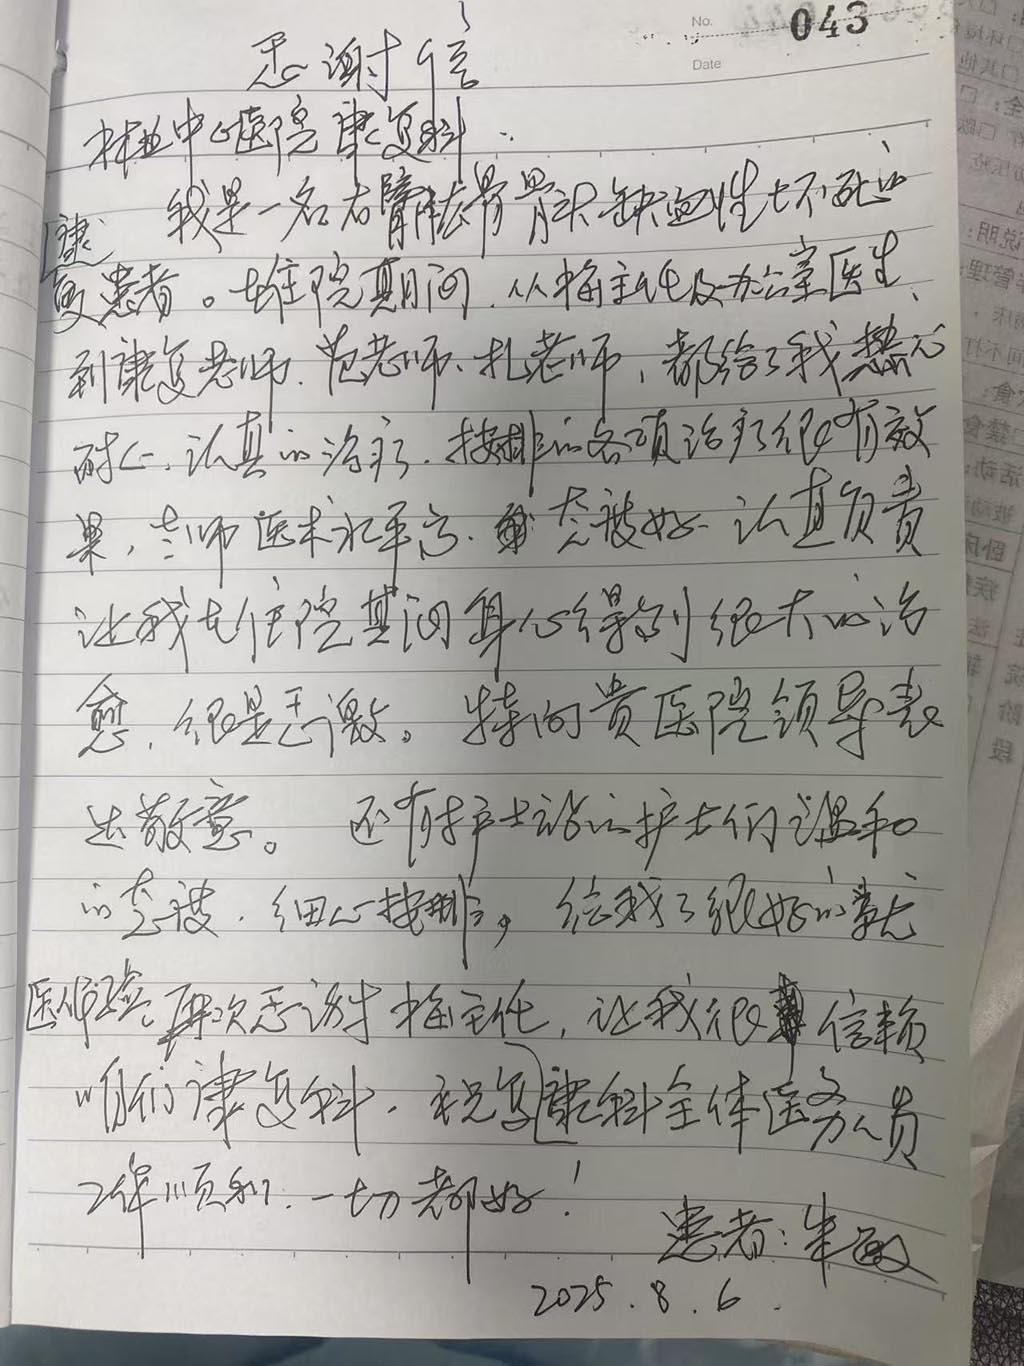 No. 043
Date
感谢信
林业中心医院康复科:
我是一名右臂肱骨骨头缺血性坏死的
康复患者。在住院期间,从梅主任及办公室医生、
到康复老师、范老师、扎老师,都给了我
耐心、认真的治疗,按排的各项治疗很有效
果,老师医术水平高、态度好、认真负责
让我在住院其间身心得到很大的治
愈,很是感激。特向贵医院领导表
达敬意。还有护士站的护士们温和
的态度,细心按排,给我了很好的就
医体验,再次感谢梅主任,让我很信赖
咱们康复科,祝康复科全体医务人员
工作顺利、一切都好!
患者:朱敏
2025.8.6.